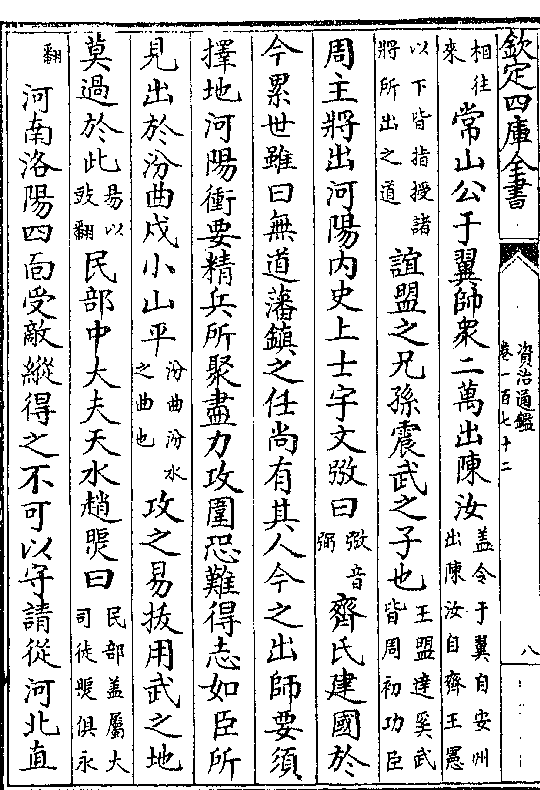 欽定四庫全書
資治通鑑
卷一百七十二
八
相往
來
常山公于翼帥衆二萬出陳汝
盖令于翼自安州
出陳汝自齊王憲
以下皆指授諸
將所出之道
誼盟之兄孫震武之子也
王盟達奚武
皆周初功臣
周主將出河陽内史上士宇文㢸曰
㢸音
弼
齊氏建國於
今累世雖曰無道藩鎮之任尚有其人今之出師要須
擇地河陽衝要精兵所聚盡力攻圍恐難得志如臣所
見出於汾曲戍小山平
汾曲汾水
之曲也
攻之易拔用武之地
莫過於此
易以
豉翻
民部中大夫天水趙煚曰
民部盖屬大
司徒煚俱永
翻
河南洛陽四面受敵縱得之不可以守請從河北直